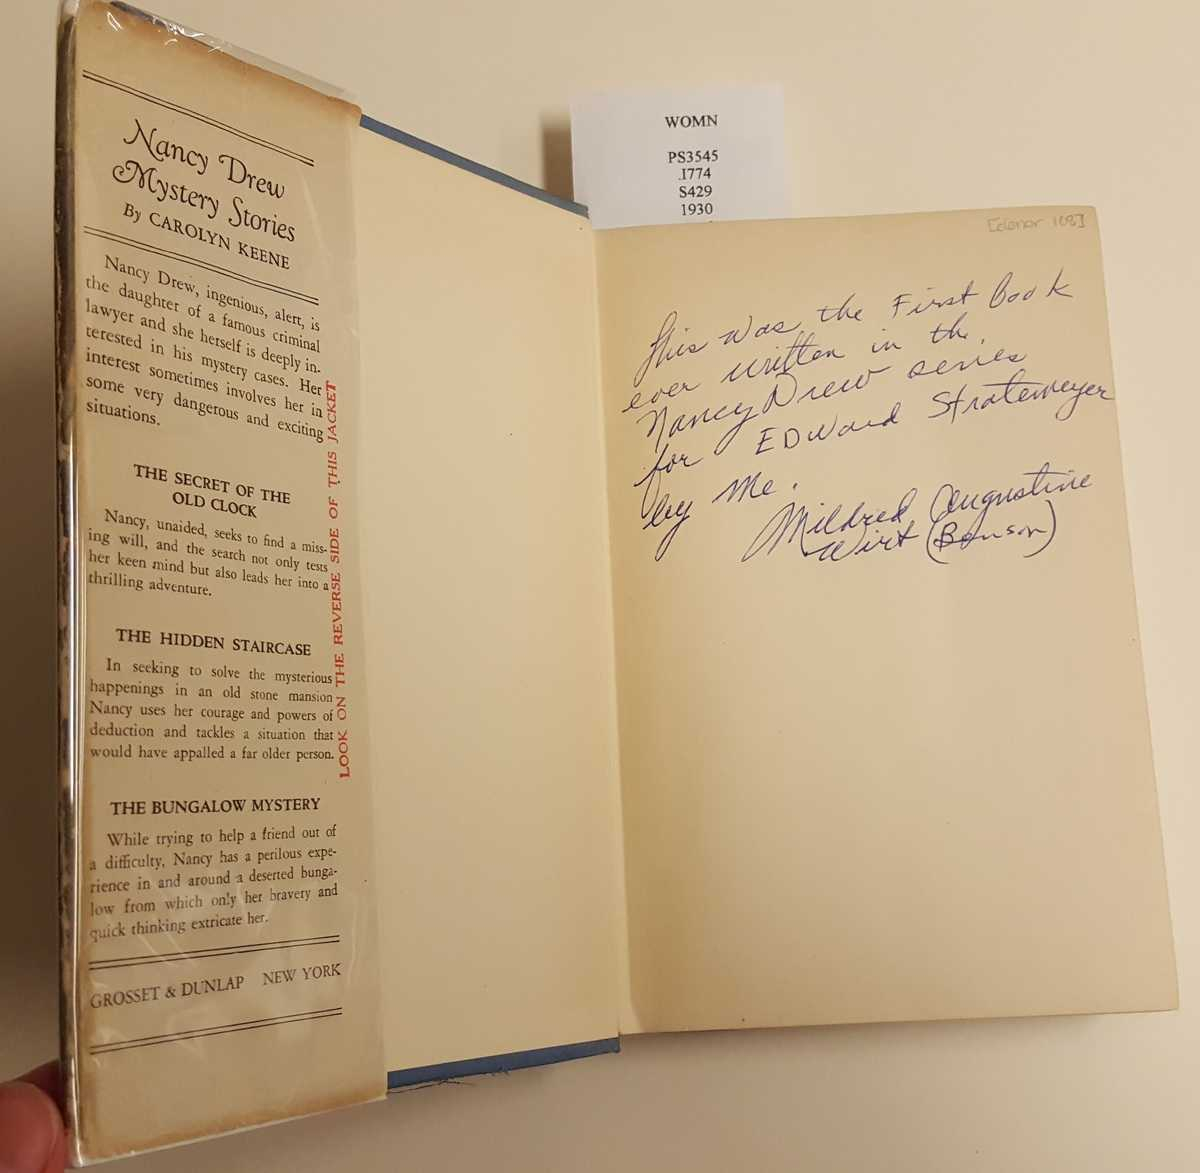 Nancy Drew
Mystery Stories
By CAROLYN KEENE
Nancy Drew, ingenious, alert, is
the daughter of a famous criminal
lawyer and she herself is deeply in-
terested in his mystery cases. Her
interest sometimes involves her in
some very dangerous and exciting
situations.
THE SECRET OF THE
OLD CLOCK
Nancy, unaided, seeks to find a miss-
ing will, and the search not only tests
her keen mind but also leads her into a
thrilling adventure.
THE HIDDEN STAIRCASE
In seeking to solve the mysterious
happenings in an old stone mansion
Nancy uses her courage and powers of
deduction and tackles a situation that
would have appalled a far older person.
THE BUNGALOW MYSTERY
While trying to help a friend out of
a difficulty, Nancy has a perilous expe-
rience in and around a deserted bunga-
low from which only her bravery and
quick thinking extricate her.
GROSSET & DUNLAP NEW YORK
LOOK ON THE REVERSE SIDE OF THIS JACKET
WOMN
PS3545
.I774
S429
1930
[donor 168]
This was the First Book
ever written in the
Nancy Drew series
for EDward Stratemeyer
by me.
Mildred Augustine
Wirt (Benson)